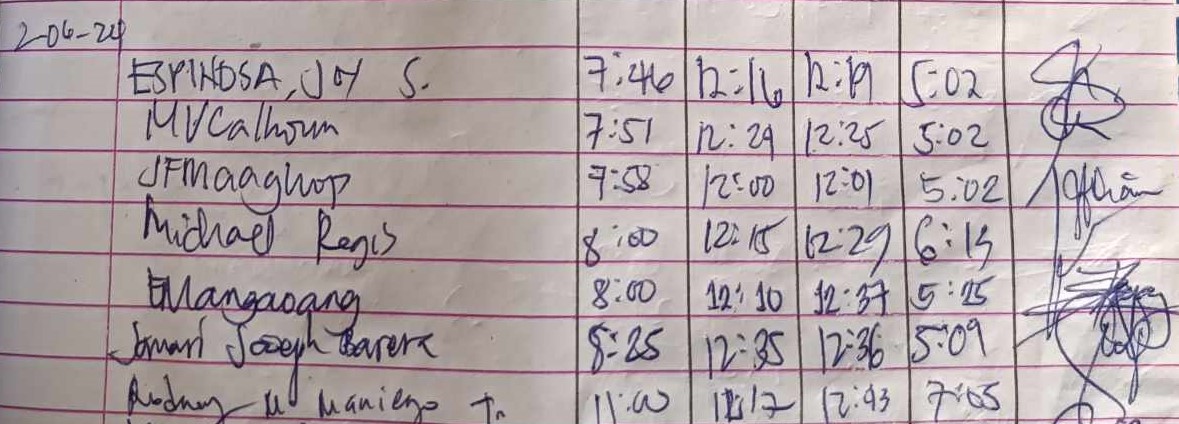 2-06-24
ESPINOSA, JOY S. 7:46 12:16 12:19 5:02
MVCalhoun 7:51 12:29 12:25 5:02
JFMaaghop 7:58 12:00 12:01 5:02
Michael Regis 8:00 12:15 12:29 6:15
EMangaoang 8:00 12:10 12:37 5:25
Joseph Barera 8:25 12:35 12:36 5:09
Rodney M Maniego Jr. 11:00 12:43 7:05